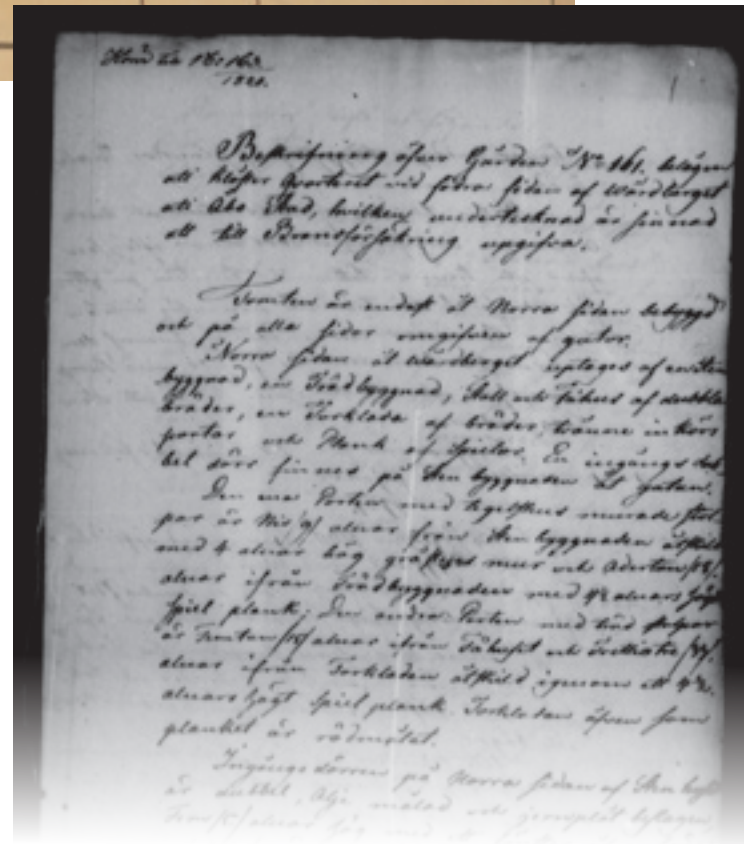 1
Beskrifning öfver Gården No 161. belägen
uti Kloster Qvarteret vid södra sidan af Wårdberget
uti Åbo Stad, hvilken undertecknad är sinnad
att till Brandförsäkring upgifva.
Tomten är endast åt Norra sidan bebygd
och på alla sidor omgifven af gator.
Norra sidan åt Wårdberget uptages af en Sten
byggnad, en Trädbyggnad, Stall och Fähus af dubbla
bräder, en Torklada af bräder, tvänne inkörs
portar och Plank af Spjelor. En ingångs dub
bel dörr finnes på Sten byggnaden åt gatan.
Den ena Porten med tegelstens murade stol
par är Nio /9/ alnar från Sten byggnaden åtskild
med 4 alnar hög gråstens mur och Aderton /18/
alnar ifrån Trädbyggnaden med 4½ alnars högt
Spiel plank; Den andra Porten med träd stolpar
är Femton /15/ alnar ifrån Fähuset och
alnar ifrån Torkladan åtskild igenom ett 4½
alnars högt Spiel plank. Torkladan äfven som
planket är rödmålat.
Ingångs dörren på Norra sidan af Sten
är dubbel, Olje målad och jernplåt beslagen,
alnar hög med